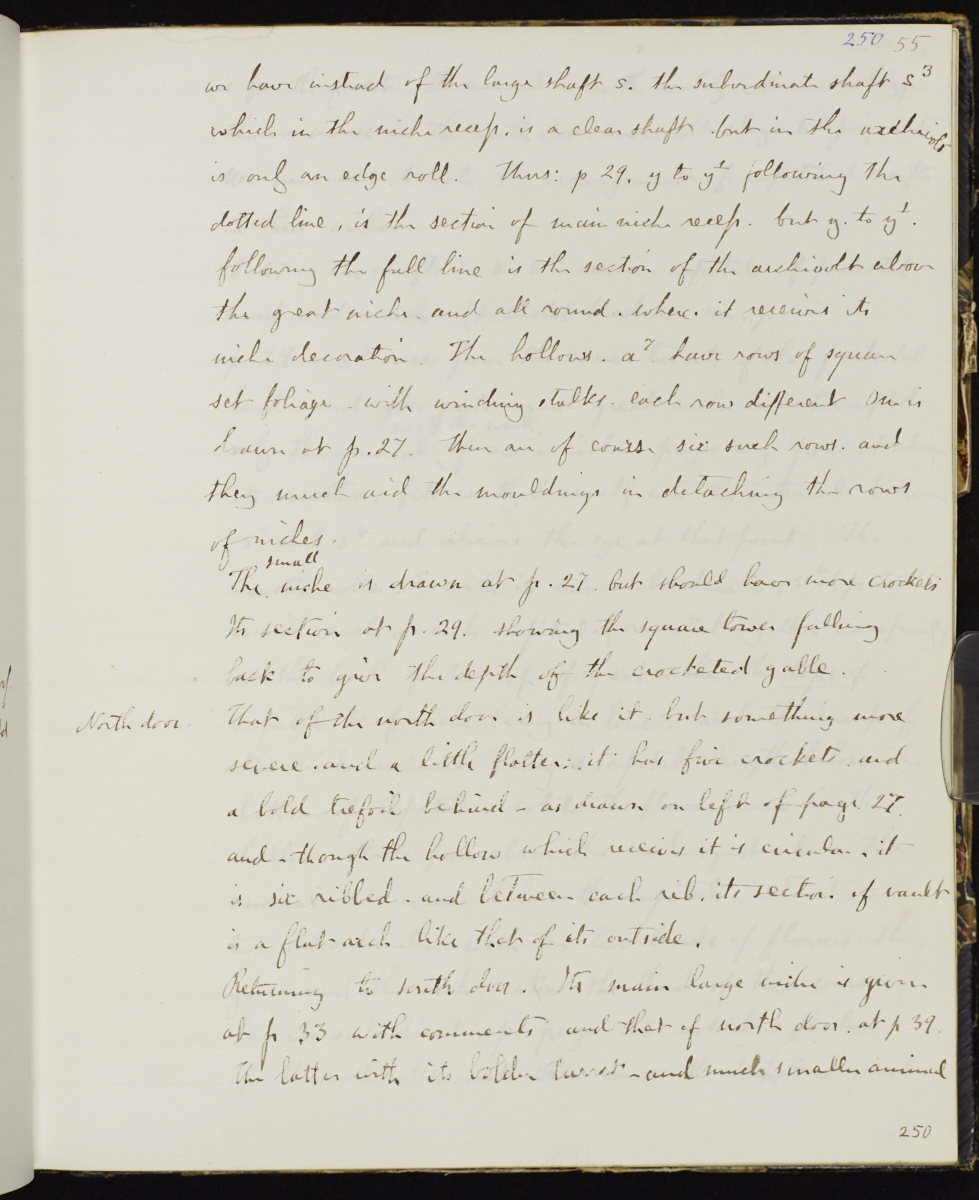 250 55
we have instead of the large shaft s. the subordinate shaft s3
which in the niche recess, is a clear shaft but in the archivolt
is only an edge roll. Thus: p 29. y to y† following the
dotted line, is the section of main niche recess. but y. to y†.
following the full line is the section of the archivolt above
the great niche. and all round. where. it receives its
niche decoration. The hollows. a7 have rows of square
set foliage. with winding stalks. each row different One is
drawn at p.27. there are of course six such rows. and
they much aid the mouldings in detaching the rows
of niches.
The small niche is drawn at p. 27. but should have more crockets
Its section at p. 29. showing the square tower falling
back to give the depth of the crocketed gable.
North door. That of the north door is like it. but something more
severe. and a little flatter: it has five crockets. and
a bold trefoil behind - as drawn on left of page 27.
and - though the hollow which receives it is circular, it
is six ribbed. and between each rib, its section of vault
is a flat arch like that of its outside.
Returning to south door. Its main large niche is given
at p 33 with comments and that of north door. at p 39.
The latter with its bolder turret - and much smaller animal
250